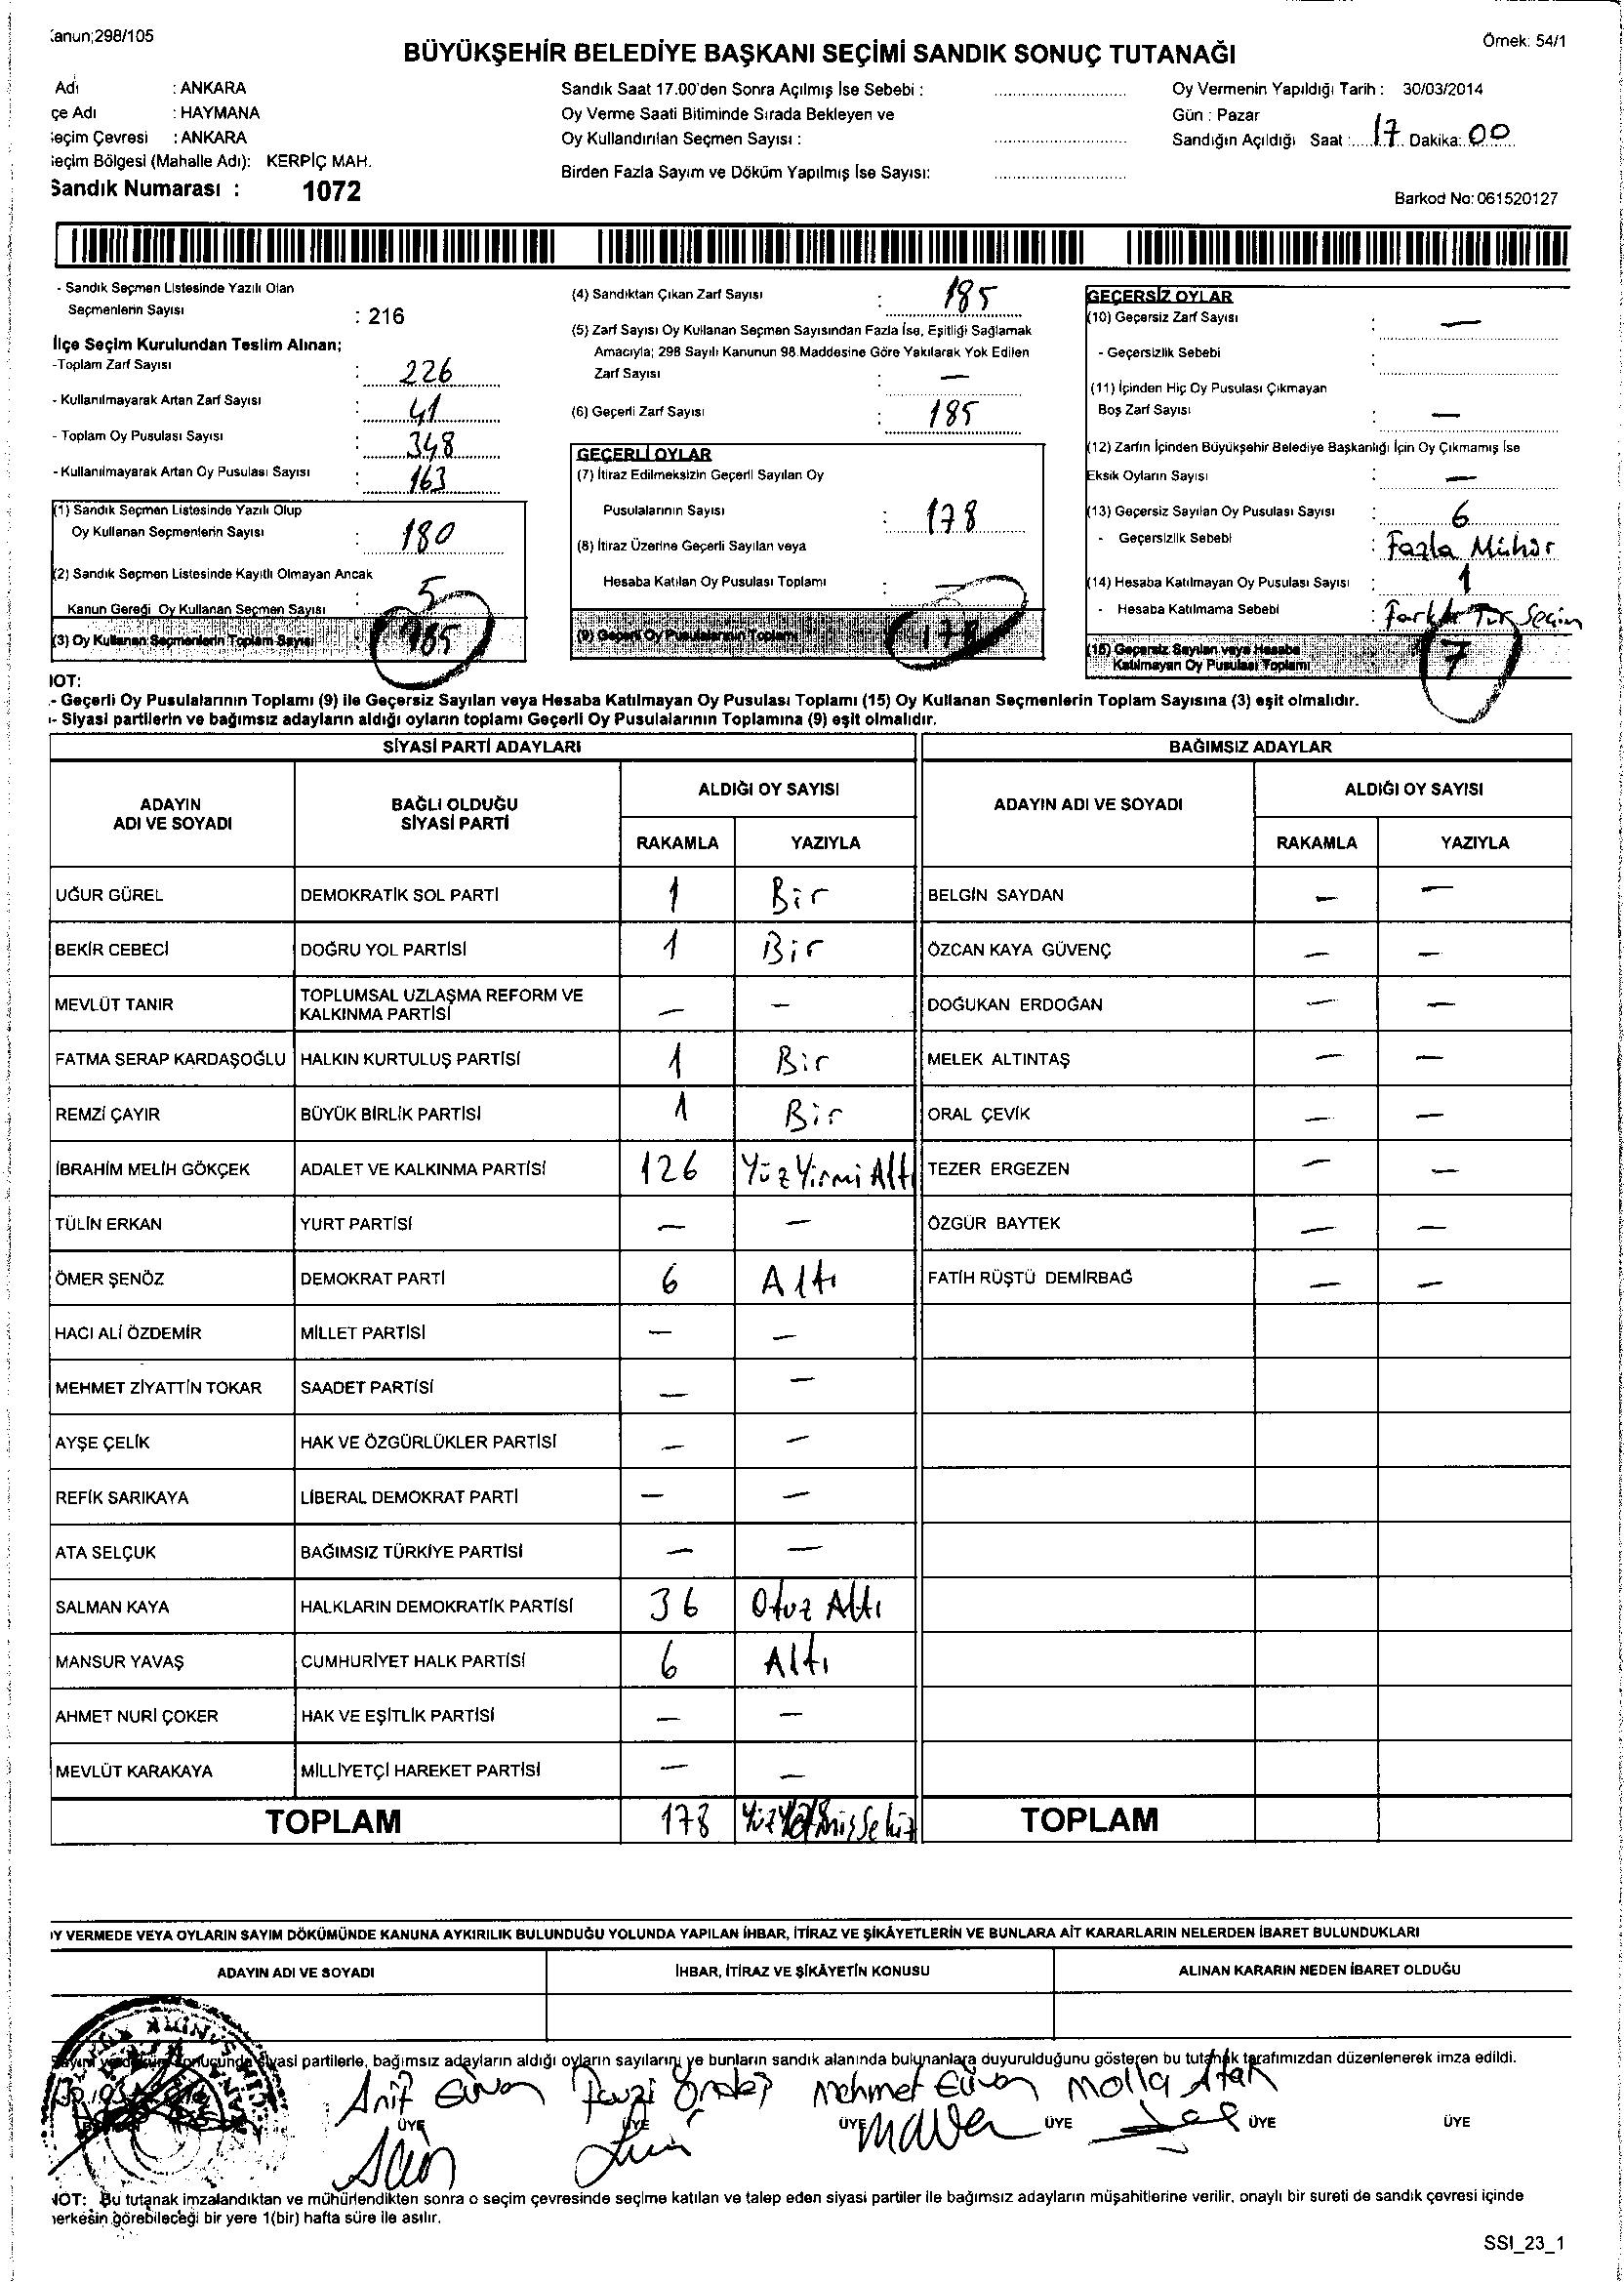 Kanun;298/105
Örnek: 54/1
BÜYÜKŞEHİR BELEDİYE BAŞKANI SEÇİMİ SANDIK SONUÇ TUTANAĞI
Adı : ANKARA
çe Adı : HAYMANA
eçim Çevresi : ANKARA
eçim Bölgesi (Mahalle Adı): KERPİÇ MAH.
Sandık Numarası : 1072
Sandık Saat 17.00'den Sonra Açılmış İse Sebebi :
Oy Verme Saati Bitiminde Sırada Bekleyen ve
Oy Kullandırılan Seçmen Sayısı :
Birden Fazla Sayım ve Döküm Yapılmış İse Sayısı:
Oy Vermenin Yapıldığı Tarih : 30/03/2014
Gün : Pazar
Sandığın Açıldığı Saat : 17 Dakika: 00
Barkod No: 061520127
- Sandık Seçmen Listesinde Yazılı Olan
Seçmenlerin Sayısı : 216
İlçe Seçim Kurulundan Teslim Alınan;
-Toplam Zarf Sayısı : 226
- Kullanılmayarak Artan Zarf Sayısı : 41
- Toplam Oy Pusulası Sayısı : 348
- Kullanılmayarak Artan Oy Pusulası Sayısı : 163
(1) Sandık Seçmen Listesinde Yazılı Olup
Oy Kullanan Seçmenlerin Sayısı : 180
(2) Sandık Seçmen Listesinde Kayıtlı Olmayan Ancak
Kanun Gereği Oy Kullanan Seçmen Sayısı : 5
(3) Oy Kullanan Seçmenlerin Toplam Sayısı : 185
(4) Sandıktan Çıkan Zarf Sayısı : 185
(5) Zarf Sayısı Oy Kullanan Seçmen Sayısından Fazla İse, Eşitliği Sağlamak
Amacıyla; 298 Sayılı Kanunun 98.Maddesine Göre Yakılarak Yok Edilen
Zarf Sayısı : —
(6) Geçerli Zarf Sayısı : 185
GEÇERLİ OYLAR
(7) İtiraz Edilmeksizin Geçerli Sayılan Oy
Pusulalarının Sayısı : 178
(8) İtiraz Üzerine Geçerli Sayılan veya
Hesaba Katılan Oy Pusulası Toplamı :
(9) Geçerli Oy Pusulalarının Toplamı : 178
GEÇERSİZ OYLAR
(10) Geçersiz Zarf Sayısı : —
- Geçersizlik Sebebi :
(11) İçinden Hiç Oy Pusulası Çıkmayan
Boş Zarf Sayısı : —
(12) Zarfın İçinden Büyükşehir Belediye Başkanlığı İçin Oy Çıkmamış İse
Eksik Oyların Sayısı : —
(13) Geçersiz Sayılan Oy Pusulası Sayısı : 6
- Geçersizlik Sebebi : Fazla Mühür
(14) Hesaba Katılmayan Oy Pusulası Sayısı : 1
- Hesaba Katılmama Sebebi : Farklı Tür Seçim
(15) Geçersiz Sayılan veya Hesaba
Katılmayan Oy Pusulası Toplamı : 7
NOT:
- Geçerli Oy Pusulalarının Toplamı (9) ile Geçersiz Sayılan veya Hesaba Katılmayan Oy Pusulası Toplamı (15) Oy Kullanan Seçmenlerin Toplam Sayısına (3) eşit olmalıdır.
- Siyasi partilerin ve bağımsız adayların aldığı oyların toplamı Geçerli Oy Pusulalarının Toplamına (9) eşit olmalıdır.
SİYASİ PARTİ ADAYLARI BAĞIMSIZ ADAYLAR
ADAYIN ADI VE SOYADI BAĞLI OLDUĞU SİYASİ PARTİ ALDIĞI OY SAYISI ADAYIN ADI VE SOYADI ALDIĞI OY SAYISI
RAKAMLA YAZIYLA RAKAMLA YAZIYLA
UĞUR GÜREL DEMOKRATİK SOL PARTİ 1 Bir BELGİN SAYDAN — —
BEKİR CEBECİ DOĞRU YOL PARTİSİ 1 Bir ÖZCAN KAYA GÜVENÇ — —
MEVLÜT TANIR TOPLUMSAL UZLAŞMA REFORM VE KALKINMA PARTİSİ — — DOĞUKAN ERDOĞAN — —
FATMA SERAP KARDAŞOĞLU HALKIN KURTULUŞ PARTİSİ 1 Bir MELEK ALTINTAŞ — —
REMZİ ÇAYIR BÜYÜK BİRLİK PARTİSİ 1 Bir ORAL ÇEVİK — —
İBRAHİM MELİH GÖKÇEK ADALET VE KALKINMA PARTİSİ 126 Yüz Yirmi Altı TEZER ERGEZEN — —
TÜLİN ERKAN YURT PARTİSİ — — ÖZGÜR BAYTEK — —
ÖMER ŞENÖZ DEMOKRAT PARTİ 6 Altı FATİH RÜŞTÜ DEMİRBAĞ — —
HACI ALİ ÖZDEMİR MİLLET PARTİSİ — —
MEHMET ZİYATTİN TOKAR SAADET PARTİSİ — —
AYŞE ÇELİK HAK VE ÖZGÜRLÜKLER PARTİSİ — —
REFİK SARIKAYA LİBERAL DEMOKRAT PARTİ — —
ATA SELÇUK BAĞIMSIZ TÜRKİYE PARTİSİ — —
SALMAN KAYA HALKLARIN DEMOKRATİK PARTİSİ 36 Otuz Altı
MANSUR YAVAŞ CUMHURİYET HALK PARTİSİ 6 Altı
AHMET NURİ ÇOKER HAK VE EŞİTLİK PARTİSİ — —
MEVLÜT KARAKAYA MİLLİYETÇİ HAREKET PARTİSİ — —
TOPLAM 178 Yüz Yetmiş Sekiz TOPLAM
OY VERMEDE VEYA OYLARIN SAYIM DÖKÜMÜNDE KANUNA AYKIRILIK BULUNDUĞU YOLUNDA YAPILAN İHBAR, İTİRAZ VE ŞİKÂYETLERİN VE BUNLARA AİT KARARLARIN NELERDEN İBARET BULUNDUKLARI
ADAYIN ADI VE SOYADI İHBAR, İTİRAZ VE ŞİKÂYETİN KONUSU ALINAN KARARIN NEDEN İBARET OLDUĞU
siyasi partilerle, bağımsız adayların aldığı oyların sayılarını ve bunların sandık alanında bulunanlara duyurulduğunu gösteren bu tutanak tarafımızdan düzenlenerek imza edildi.
Arif Güven Mehmet Güven Molla Atak
ÜYE ÜYE ÜYE ÜYE ÜYE ÜYE
NOT: Bu tutanak imzalandıktan ve mühürlendikten sonra o seçim çevresinde seçime katılan ve talep eden siyasi partiler ile bağımsız adayların müşahitlerine verilir, onaylı bir sureti de sandık çevresi içinde
herkesin görebileceği bir yere 1(bir) hafta süre ile asılır.
SSI_23_1